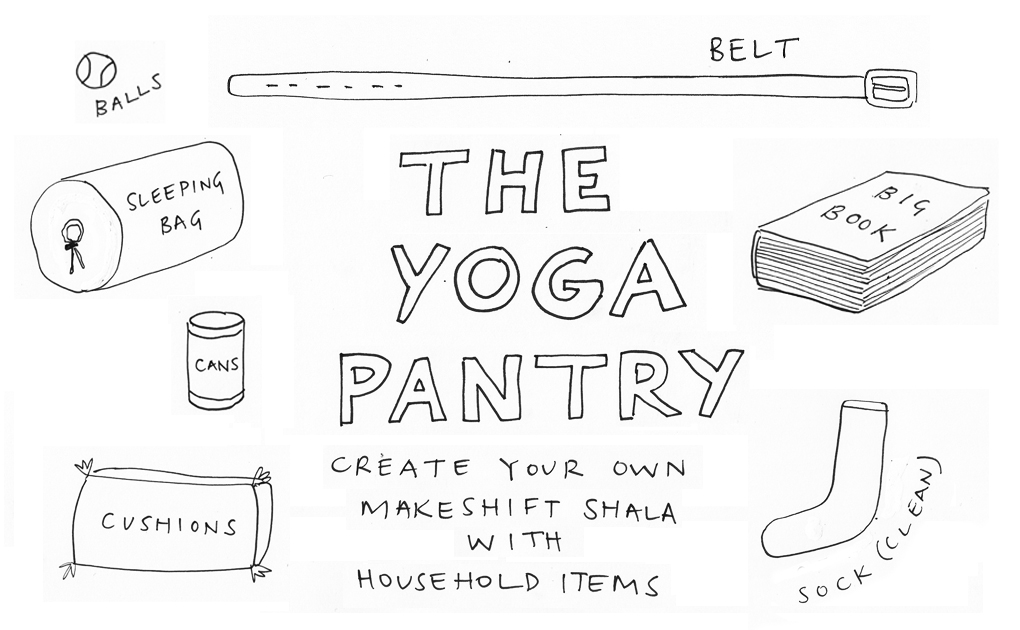 BELT
BALLS
THE
SLEEPING
BAG
BIG
BOOK
YOGA
CANS
PANTRY
CREATE YOUR OWN
MAKESHIFT SHALA
WITH
HOUSEHOLD ITEMS
CUSHIONS
SOCK (CLEAN)